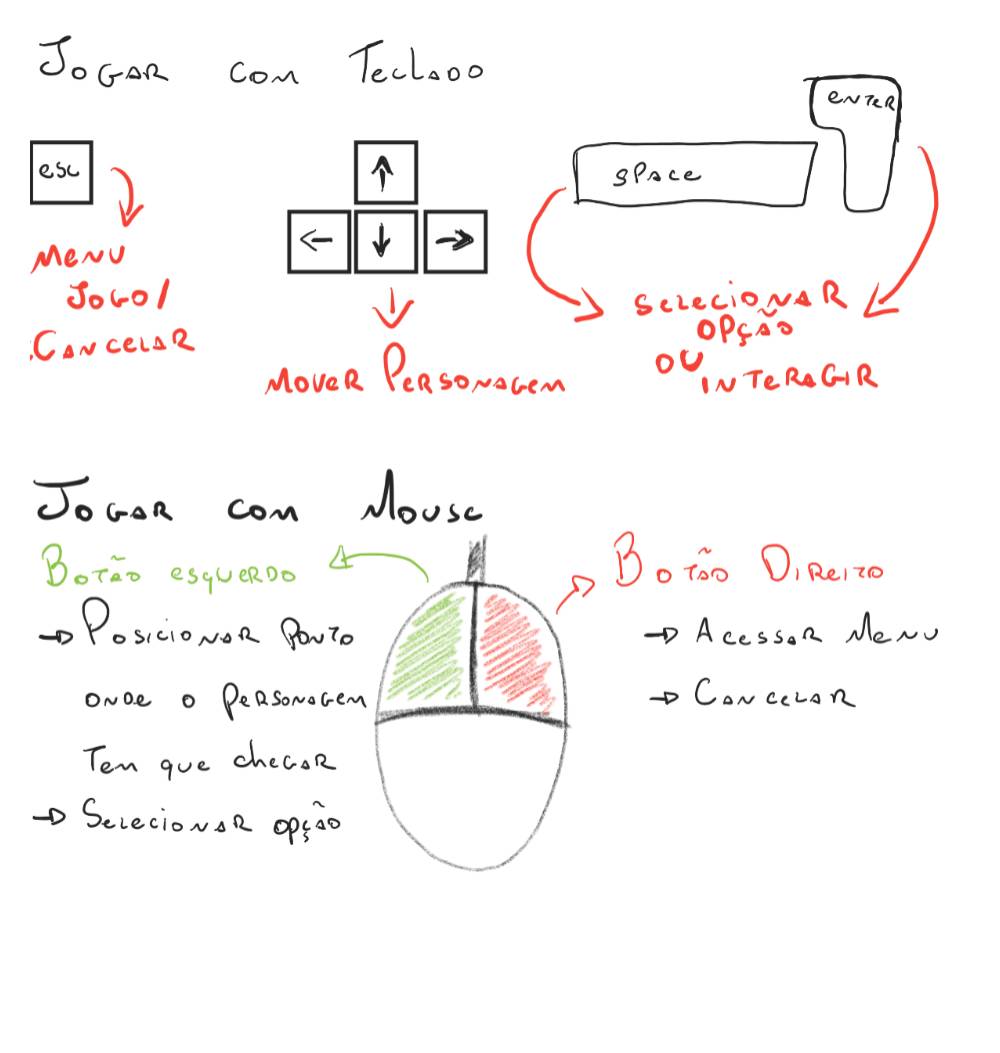 Jogar com Teclado
esc
↑
← ↓ →
space
enter
Menu
Jogo/
Cancelar
Mover Personagem
Selecionar
opção
ou
interagir
Jogar com Mouse
Botão esquerdo
→ Posicionar Ponto
onde o Personagem
Tem que chegar
→ Selecionar opção
Botão Direito
→ Acessar Menu
→ Cancelar